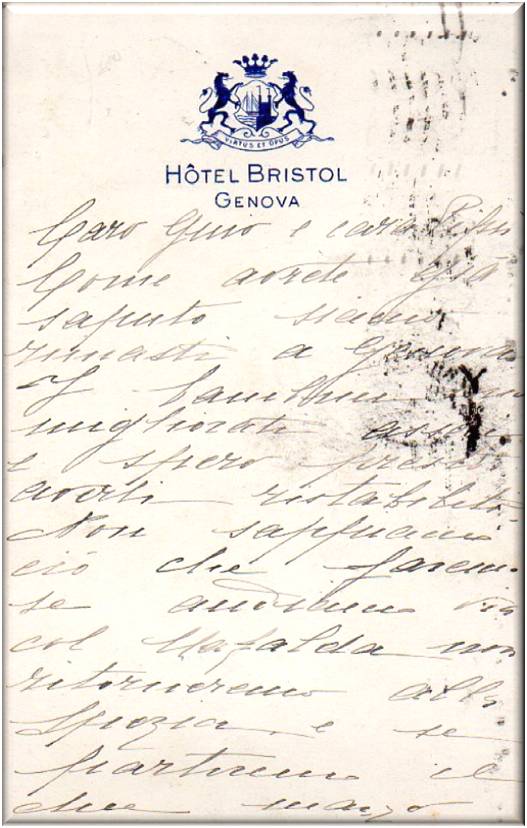 VIRTUS ET OPUS
HÔTEL BRISTOL
GENOVA
Caro Gino e cara
Come avrete già
saputo siamo
rimasti a Genova
I bambini
migliorati assai
e spero presto
averli ristabiliti
Non sappiamo
ciò che faremo
se andremo via
col Mafalda non
ritorneremo alla
Spezia, e se
partiremo il
due marzo